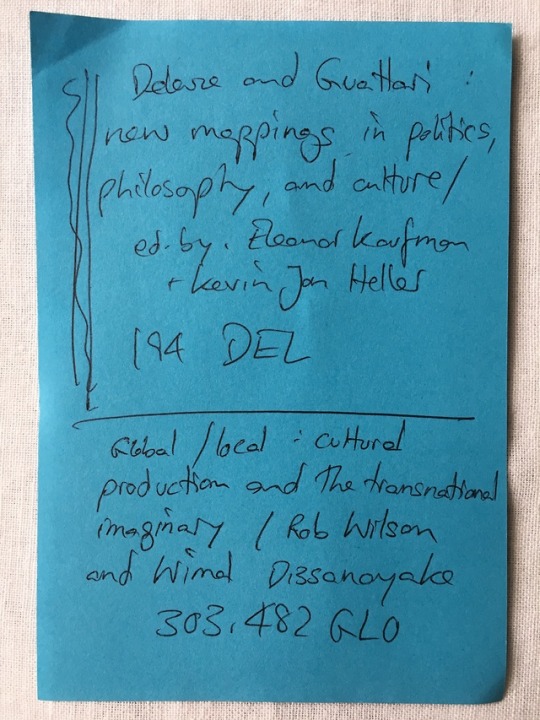 Deleuze and Guattari :
new mappings in politics,
philosophy, and culture/
ed. by. Eleanor Kaufman
+ Kevin Jon Heller
194 DEL
Global / local : cultural
production and the transnational
imaginary / Rob Wilson
and Wimal Dissanayake
303.482 GLO